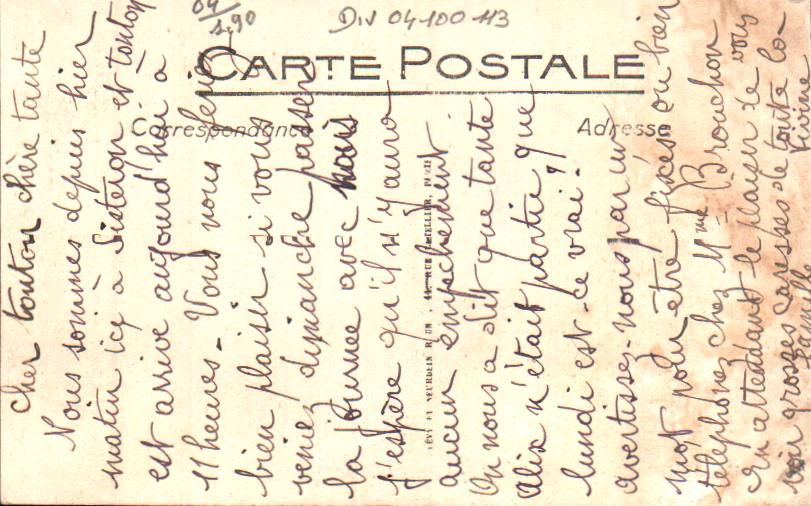 04/
1,90
Div 04-100-113
CARTE POSTALE
Correspondance
Adresse
LÉVY ET NEURDEIN RÉUNIS, 44, RUE LETELLIER, PARIS
Cher tonton chère tante
Nous sommes depuis hier
matin ici à Sisteron et tonton
est arrivé aujourd'hui à
11 heures - Vous nous fere
bien plaisir si vous
veniez dimanche passer
la journée avec nous
j'espère qu'il n'y aura
aucun empêchement
On nous a dit que tante
Alix n'était partie que
lundi est-ce vrai?
avertissez-nous par un
mot pour être fixés ou bien
téléphonez chez Mme Brouchon
En attendant le plaisir de vous
voir grosses caresses de toute la
Viviane